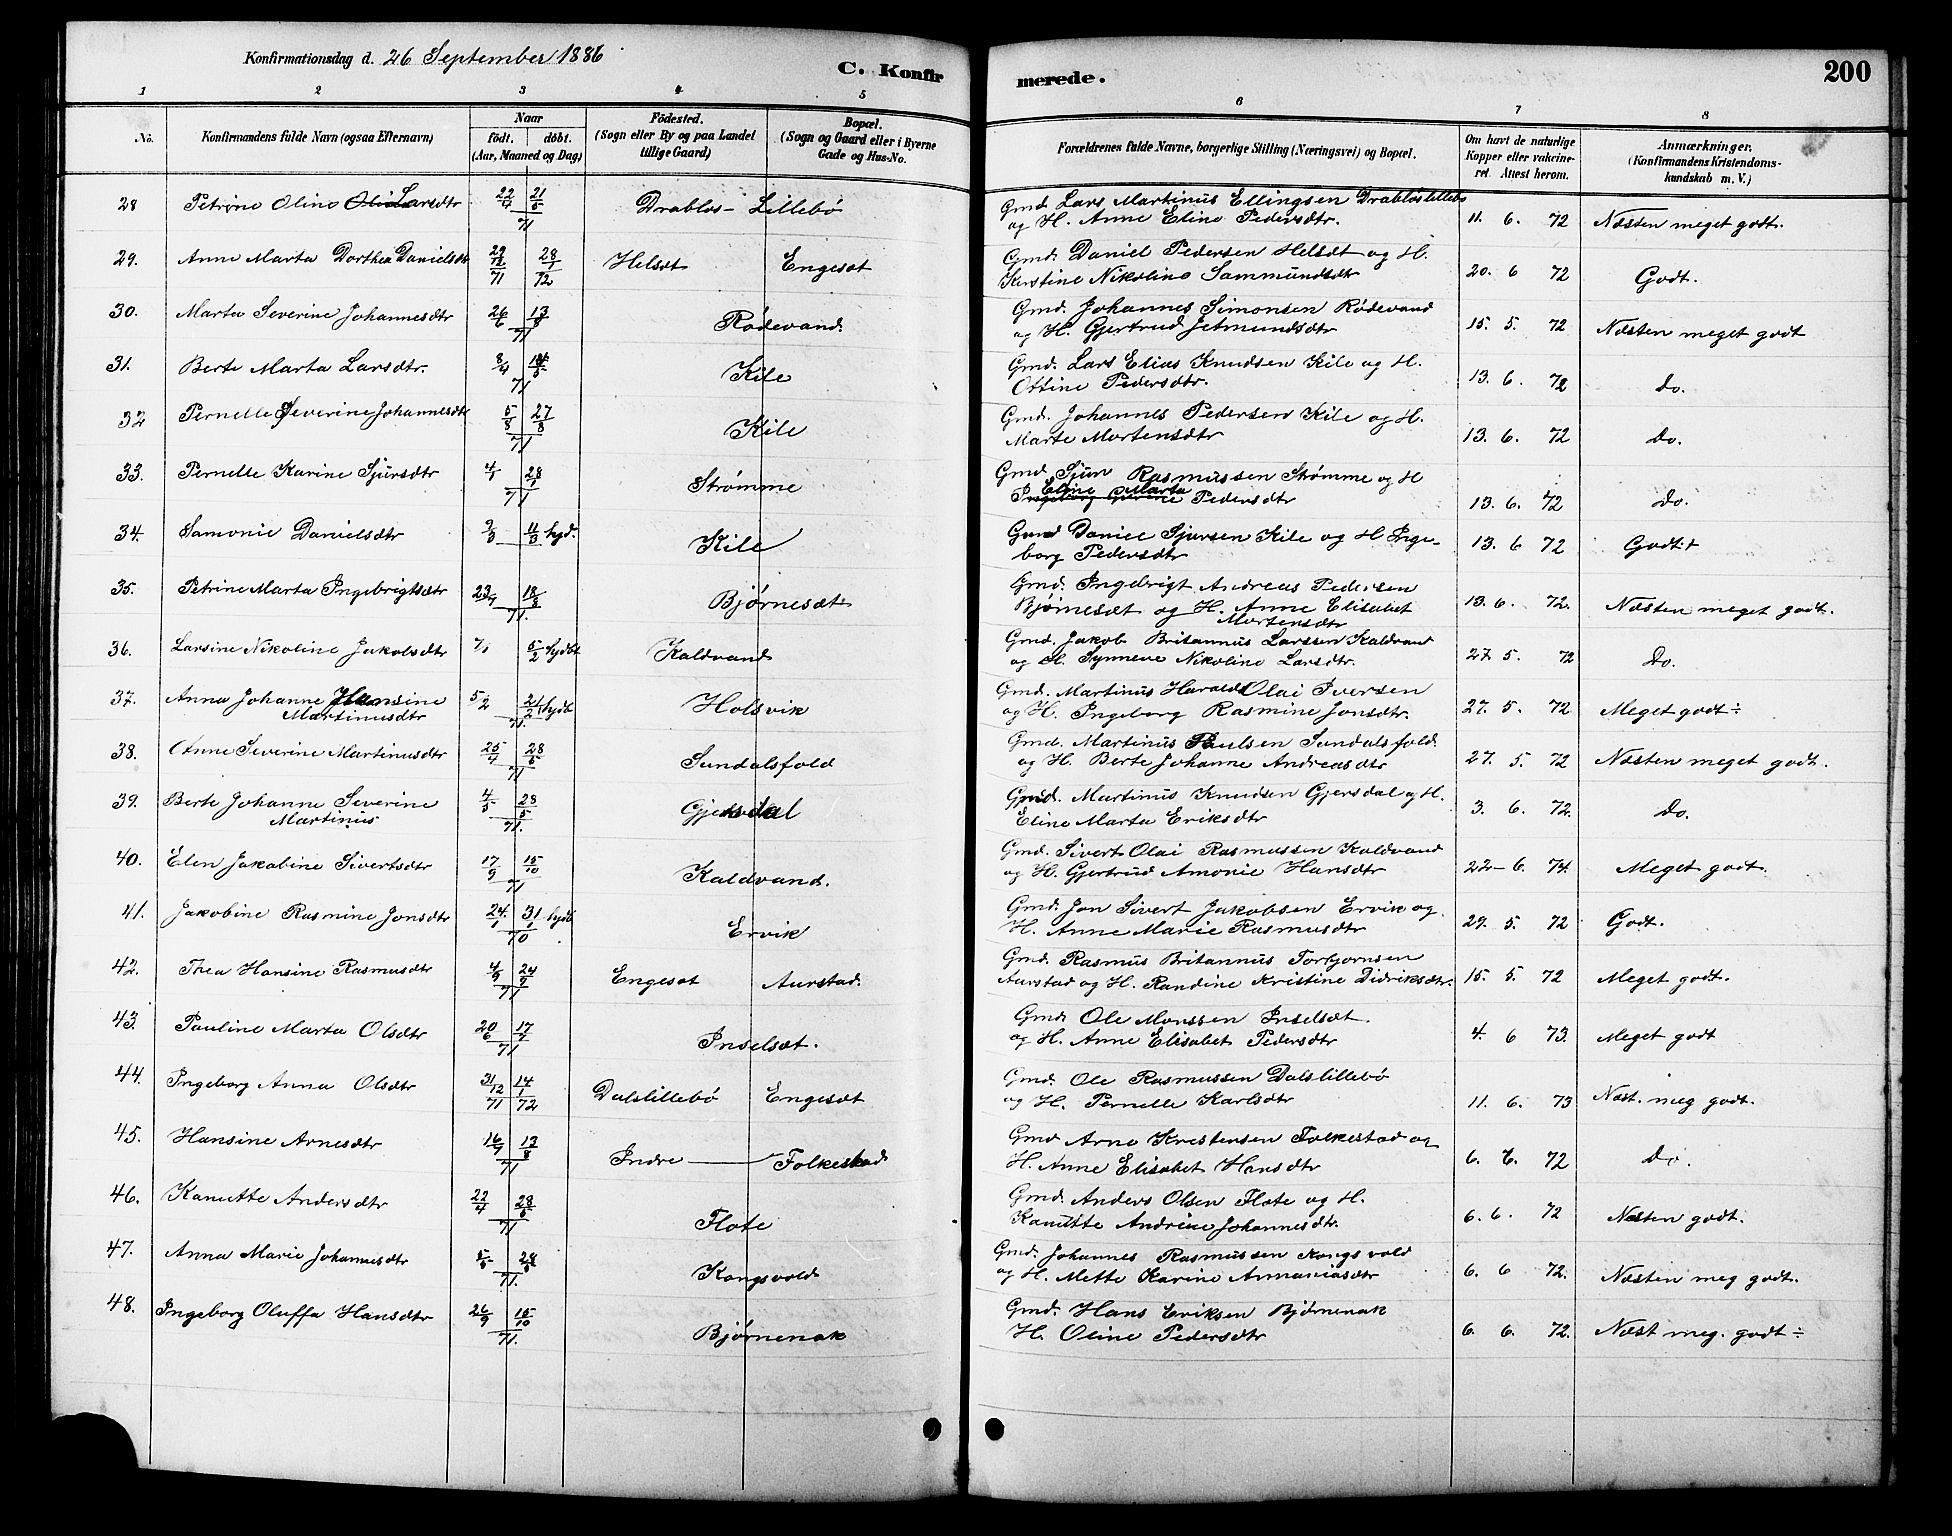 Konfirmationsdag d. 26 September 1886
C. Konfirmerede.
200
1 2 3 4 5 6 7 8
No. Konfirmandens fulde Navn (ogsaa Efternavn) Naar födt. döbt. (Aar, Maaned og Dag) Födested. (Sogn eller By og paa Landet tillige Gaard) Bopæl. (Sogn og Gaard eller i Byerne Gade og Hus-No. Forældrenes fulde Navne, borgerlige Stilling (Næringsvei) og Bopæl. Om havt de naturlige Kopper eller vakcineret. Attest herom. Anmærkninger. (Konfirmandens Kristendomskundskab m. V.)
28 Petrine Oline Larsdtr 22/4 21/5 71 Drabløs- Lillebö Gmd Lars Martinus Ellingsen Drabløslillebö
og H. Anne Eline Pedersdtr. 11. 6. 72 Næsten meget godt.
29. Anne Marta Dorthea Danielsdtr 29/12 71 28/1 72 Helsæt Engesæt Gmd. Daniel Pedersen Helsæt og H.
Kerstine Nikoline Sammundsdtr 20. 6 72 Godt.
30. Marta Severine Johannesdtr 26/6 13/8 71 Rödevand Gmd. Johannes Simonsen Rödevand
og H. Gjertrud Jetmundsdtr 15. 5. 72 Næsten meget godt
31. Berte Marta Larsdtr. 8/4 71 Kile Gmd. Lars Elias Knudsen Kile og H.
Ottine Pedersdtr. 13. 6. 72 do.
32 Pernelle Severine Johannesdtr 5/8 27/8 71 Kile Gmd. Johannes Pedersen Kile og H.
Marte Martensdtr 13. 6. 72 do.
33. Pernelle Karine Sjursdtr 4/1 28/1 71 Strømme Gmd Sjur Rasmussen Strømme og H
Eline Marta Pedersdtr 13. 6. 72 Do.
34. Samonie Danielsdtr 9/3 11/3 hjd. Kile Gmd Daniel Sjursen Kile og H Inge-
borg Pedersdtr 13. 6 72 Godt +
35. Petrine Marta Ingebrigtsdtr 23/7 18/8 71. Bjørnesæt Gmd. Ingebrigt Andreas Pedersen
Bjørnesæt og H. Anne Elisabet
Mortensdtr 13. 6. 72. Næsten meget godt.
36. Larsine Nikoline Jakobsdtr 7/1 5/2 hjdbt Kaldvand Gmd. Jakob Britannus Larssen Kaldvand
og H. Synneve Nikoline Larsdtr. 27. 5. 72 Do.
37. Anna Johanne Hansine
Martinusdtr 5/2 21/2 hjdb 71. Holsvik Gmd. Martinus Harald Olai Iversen
og H. Ingeborg Rasmine Jonsdtr. 27. 5. 72 Meget godt ÷
38. Anne Severine Martinusdtr 25/4 28/5 71 Sundalsfold Gmd. Martinus Paulsen Sundalsfold.
og H. Berte Johanne Andreasdtr 27. 5. 72 Næsten meget godt.
39. Berte Johanne Severine
Martinus 4/5 28/5 71. Gjersdal Gmd. Martinus Knudsen Gjersdal og H.
Eline Marta Eriksdtr 3. 6. 72. Do.
40. Elen Jakobine Sivertsdtr 17/9 15/10 71 Kaldvand. Gmd. Sivert Olai Rasmussen Kaldvand
og H. Gjertrud Amonie Hansdtr 22- 6. 74. Meget godt.
41. Jakobine Rasmine Jonsdtr 24/1 31/1 hjdb 70 Ervik Gmd. Jon Sivert Jakobsen Ervik og
H. Anne Marie Rasmusdtr 29. 5. 72 Godt.
42. Thea Hansine Rasmusdtr 4/9 24/9 71 Engesæt Aurstad. Gmd. Rasmus Britannus Torbjørnsen
Aurstad og H. Randine Kristine Didriksdtr. 15. 5. 72 Meget godt.
43. Pauline Marta Olsdtr 20/6 17/7 71 Inselsæt. Gmd. Ole Monssen Inselsæt.
og H. Anne Elisabet Pedersdtr 4. 6 73. Meget godt
44. Ingeborg Anna Olsdtr 31/12 71 14/1 72 Dalslillebö Engesæt Gmd. Ole Rasmussen Dalslillebö
og H. Pernelle Karlsdtr 11. 6. 73 Næst. meg godt.
45. Hansine Arnesdtr 16/7 13/8 71 Indre — Folkestad Gmd Arne Kristensen Folkestad og
H. Anne Elisabet Hansdtr 6. 6. 72 Do.
46. Kanutte Andersdtr 22/4 28/5 71 Flote Gmd. Anders Olsen Flote og H.
Kanutte Andrine Johannesdtr. 6. 6. 72 Næsten godt.
47. Anna Marie Johannesdtr 5/5 28/5 71. Kongsvold Gmd. Johannes Rasmussen Kongsvold
og H. Mette Karine Annaniasdtr 6. 6 72. Næsten meg godt.
48. Ingeborg Oluffa Hansdtr 26/9 15/10 71. Bjørnenak Gmd. Hans Eriksen Bjørnenak
H. Oline Pedersdtr 6. 6. 72. Næst meg. godt ÷